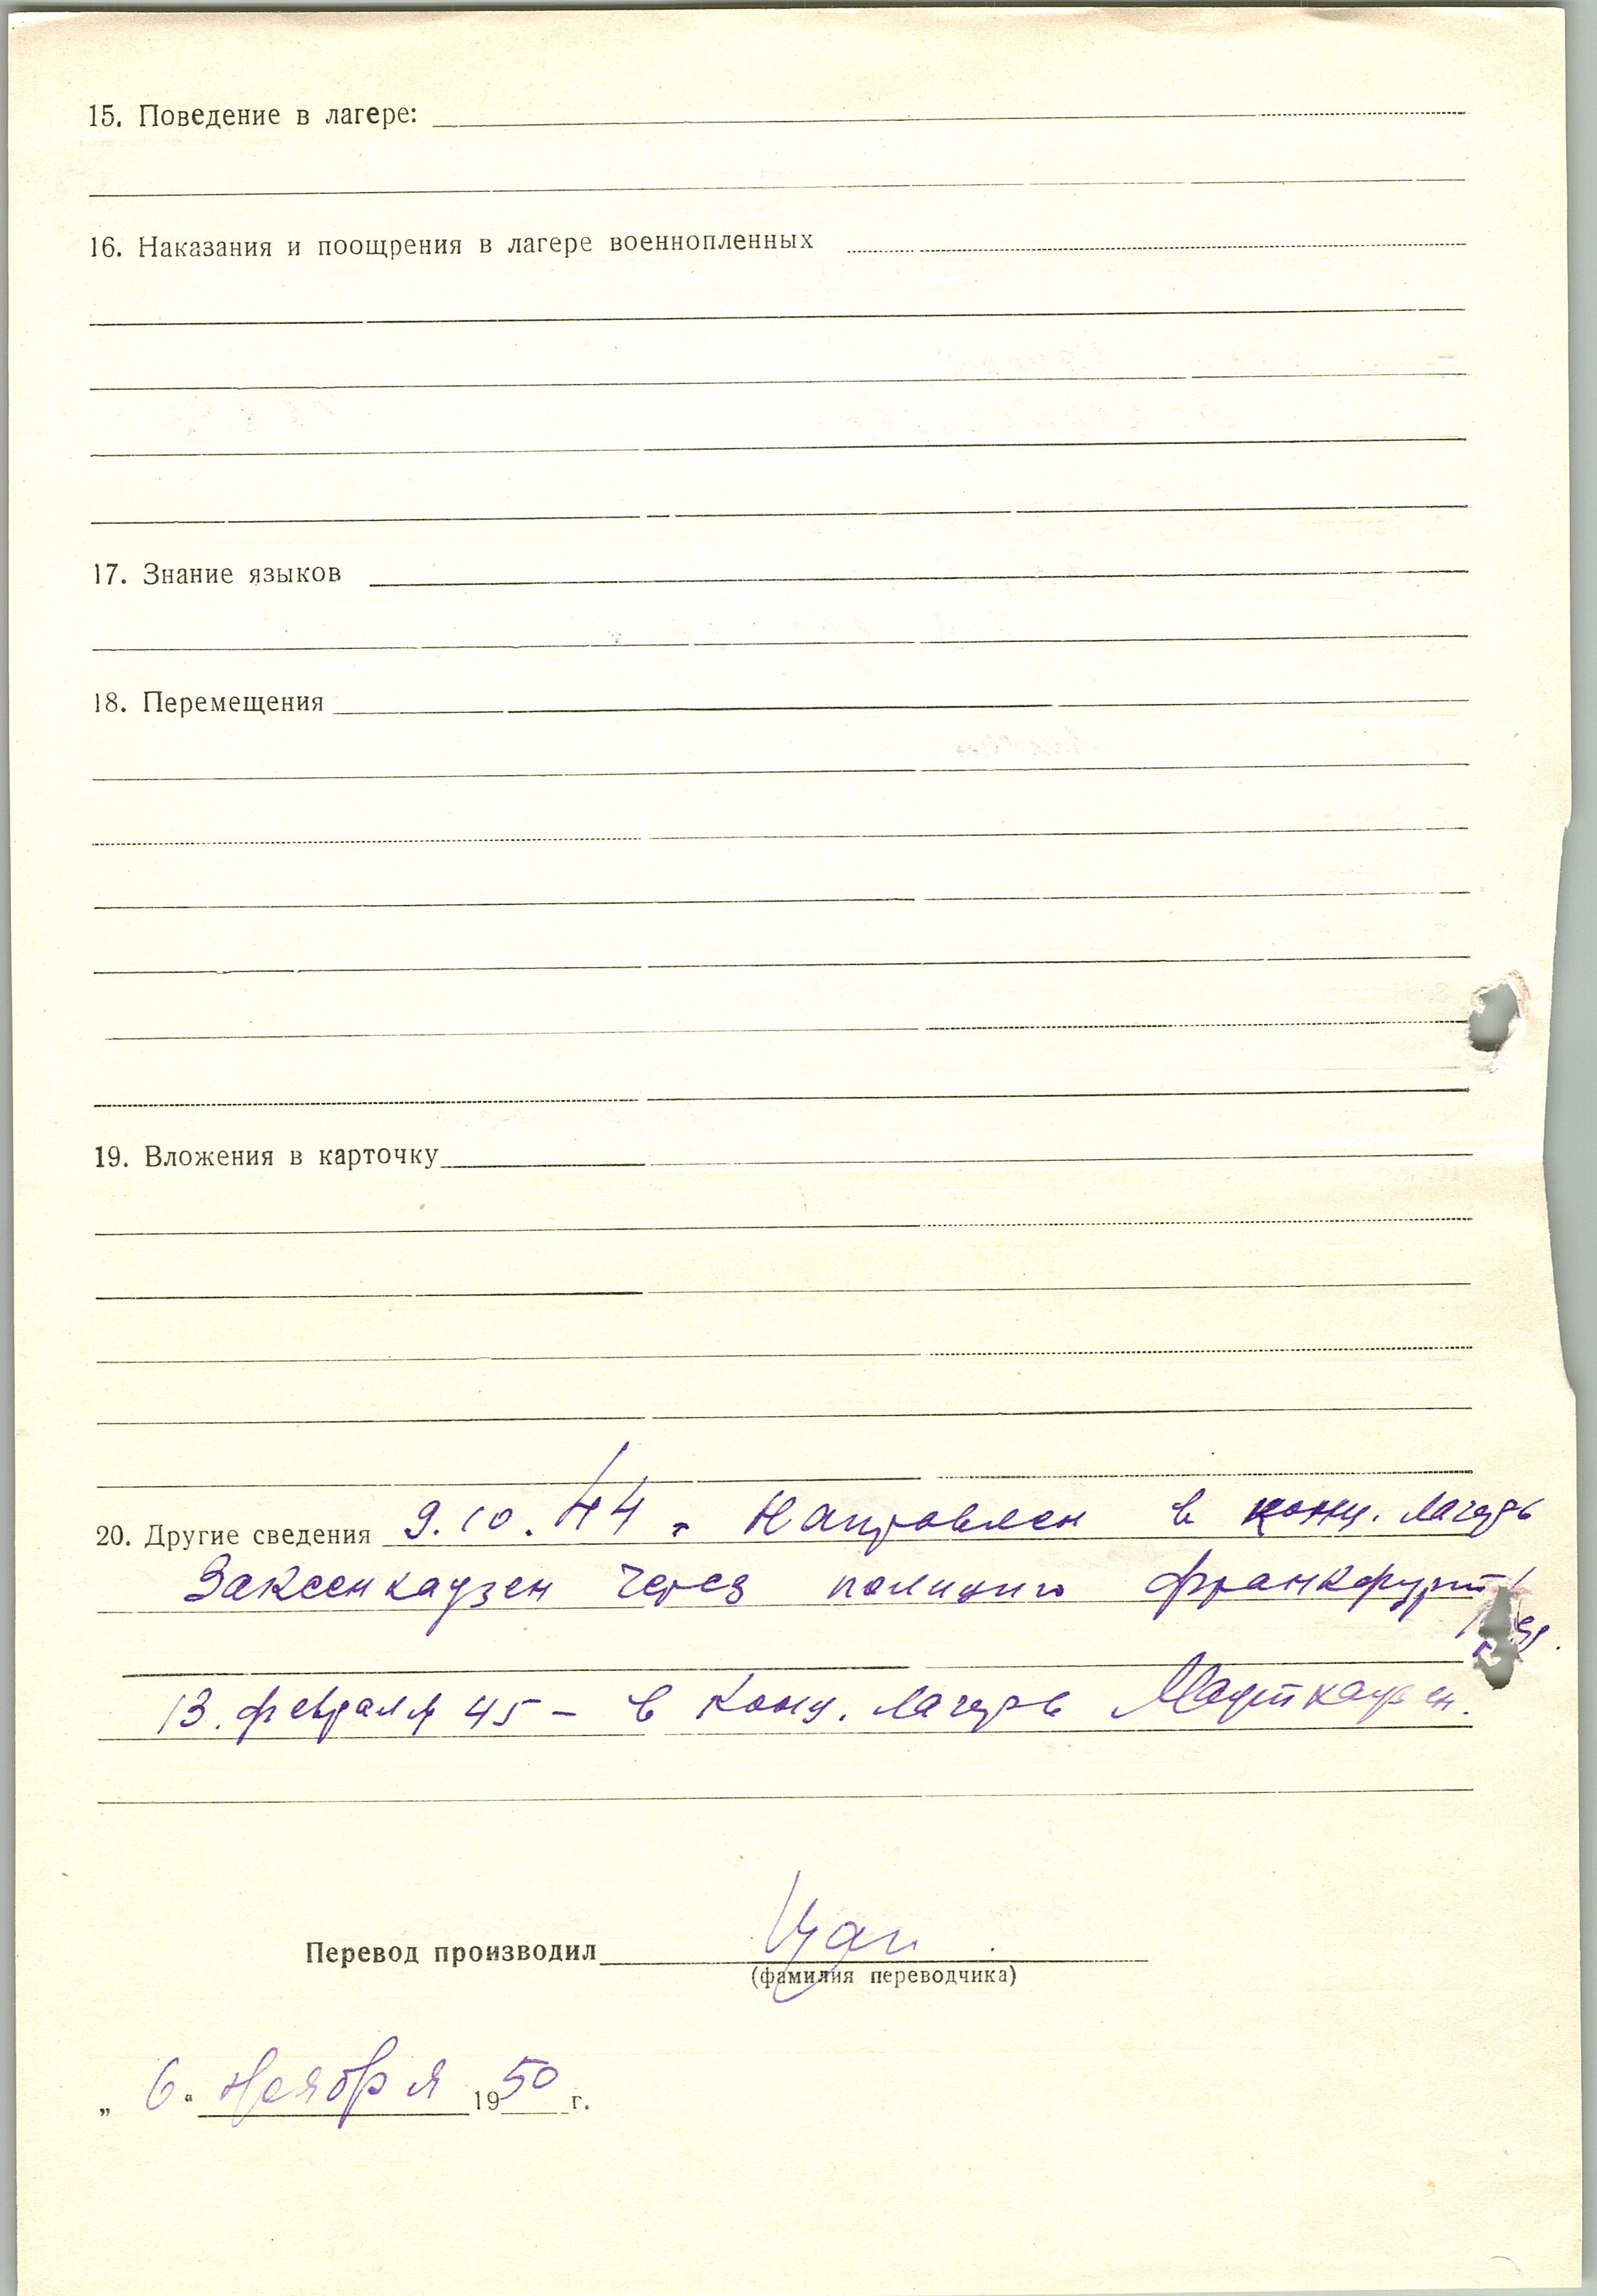 15. Поведение в лагере:
16. Наказания и поощрения в лагере военнопленных
17. Знание языков
18. Перемещения
19. Вложения в карточку
20. Другие сведения 9.10.44. Направлен в конц. лагерь
Заксенхаузен через полицию Франкфурт/
13. февраля 45 – в конц. лагерь Маутхаузен.
Перевод производил
(фамилия переводчика)
„ 6 “ Ноября 1950 г.